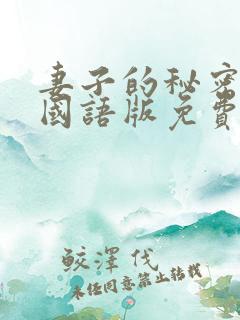 妻子的秘密
國語版免費
鮫澤伐
未经同意禁止转载